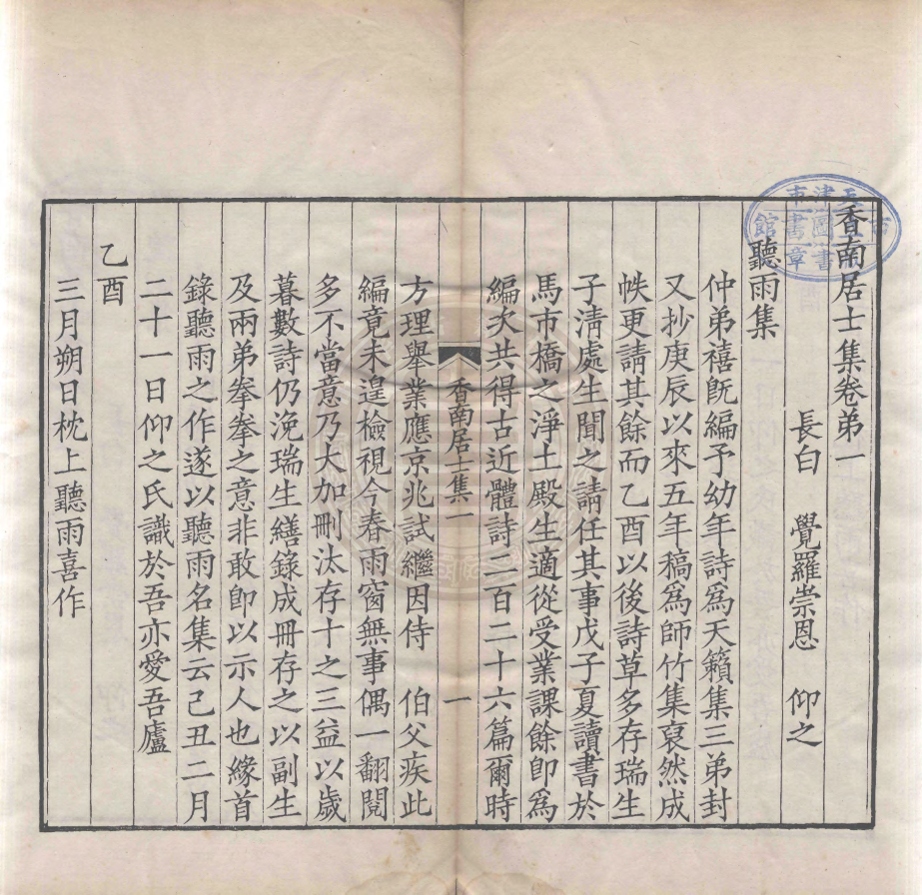 香南居士集卷弟一
長白　覺羅崇恩　仰之
聽雨集
仲弟禧旣編予幼年詩爲天籟集三弟封
又抄庚辰以來五年稿爲師竹集裒然成
帙更請其餘而乙酉以後詩草多存瑞生
子淸處生聞之請任其事戊子夏讀書於
馬市橋之淨土殿生適從受業課餘卽爲
編次共得古近體詩二百二十六篇爾時
香南居士集一
一
方理舉業應京兆試繼因侍　伯父疾此
編竟未遑檢視今春雨窗無事偶一翻閱
多不當意乃大加刪汰存十之三益以歲
暮數詩仍浼瑞生繕錄成冊存之以副生
及兩弟拳拳之意非敢卽以示人也緣首
錄聽雨之作遂以聽雨名集云己丑二月
二十一日仰之氏識於吾亦愛吾廬
乙酉
三月朔日枕上聽雨喜作